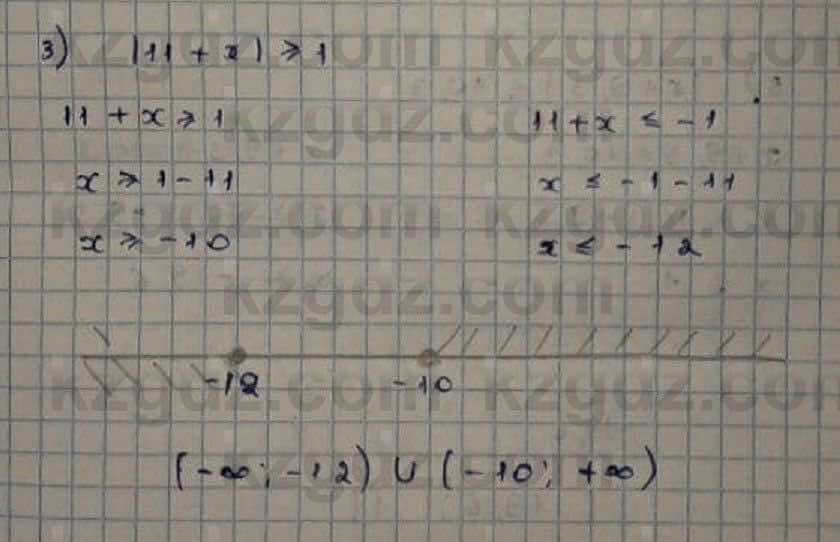 3) |11 + x| ⩾ 1
11 + x ⩾ 1 11 + x ≤ -1
x ⩾ 1 - 11 x ≤ -1 - 11
x ⩾ -10 x ≤ -12
-12 -10
(-∞; -12) ∪ (-10; +∞)
kzgdz.com kzgdz.com
kzgdz.com
kzgdz.com kzgdz.com
kzgdz.com
kzgdz.com kzgdz.com